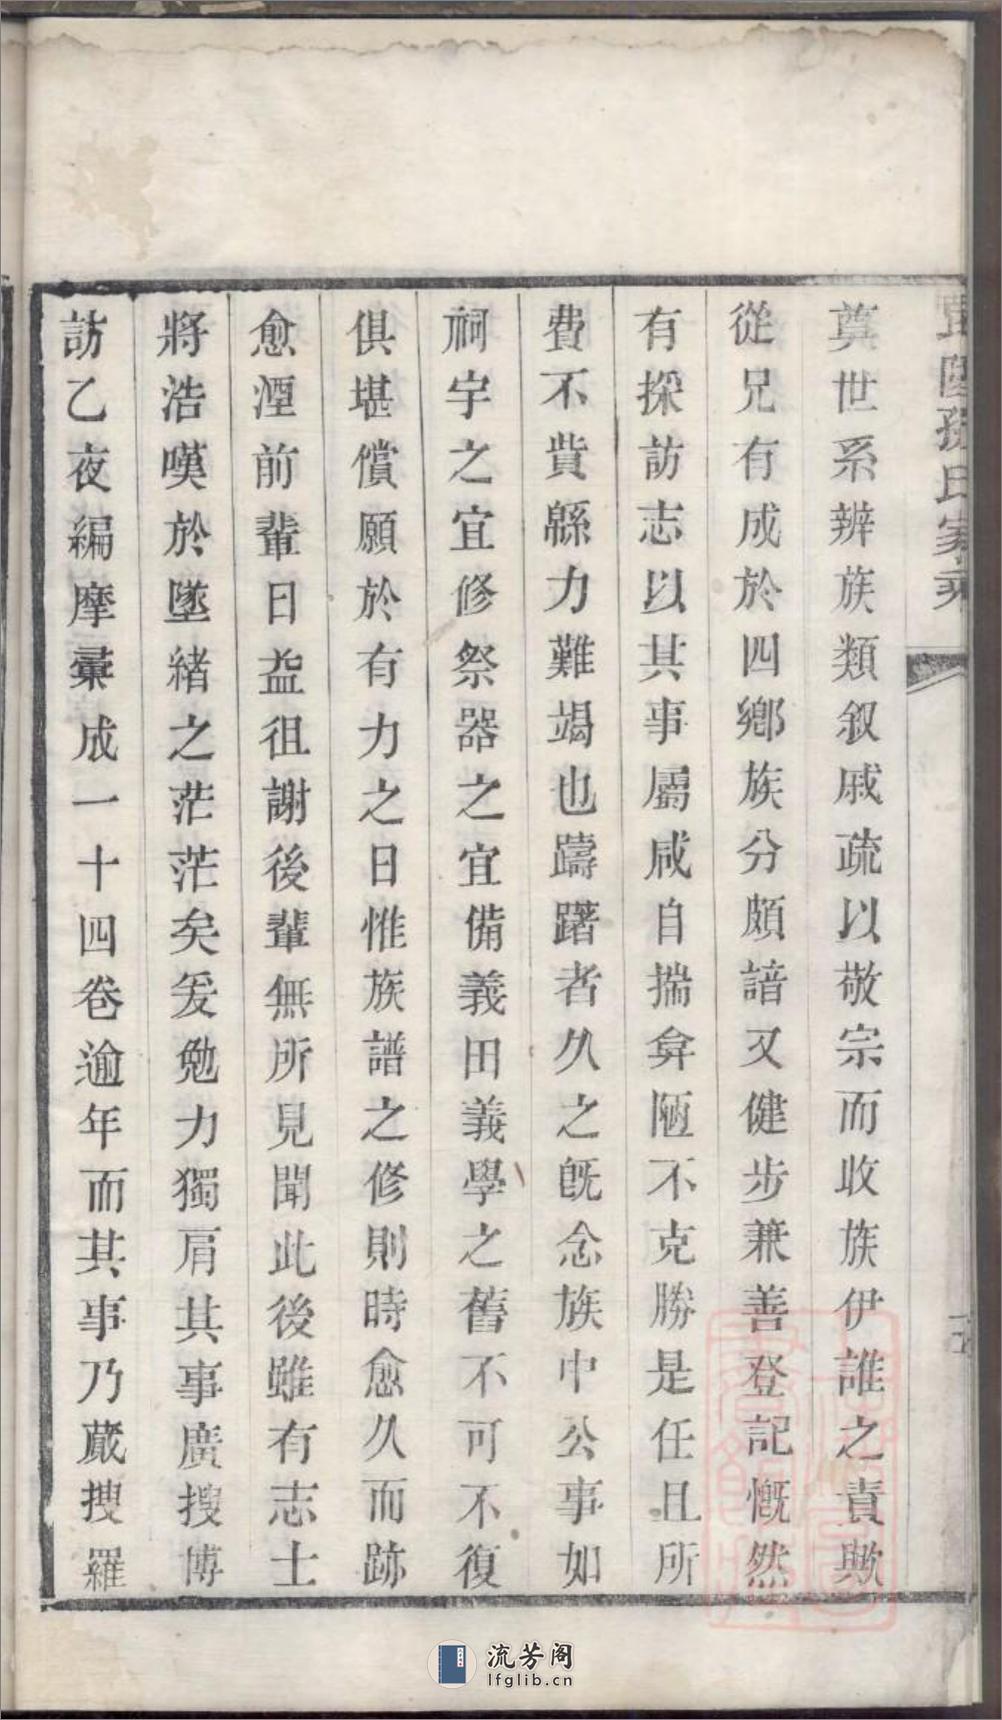 孫氏家乘
奠世系辨族類叙戚疏以敬宗而收族伊誰之責歟
從兄有成於四鄉族分頗諳又健步兼善登記慨然
有採訪志以其事屬咸自揣弇陋不克勝是任且所
費不貲緜力難竭也躊躇者久之旣念族中公事如
祠宇之宜修祭器之宜備義田義學之舊不可不復
俱堪償願於有力之日惟族譜之修則時愈久而跡
愈湮前輩日益徂謝後輩無所見聞此後雖有志士
將浩嘆於墜緒之茫茫矣爰勉力獨肩其事廣搜博
訪乙夜編摩彚成一十四卷逾年而其事乃蕆搜羅
流芳阁
lfglib.cn